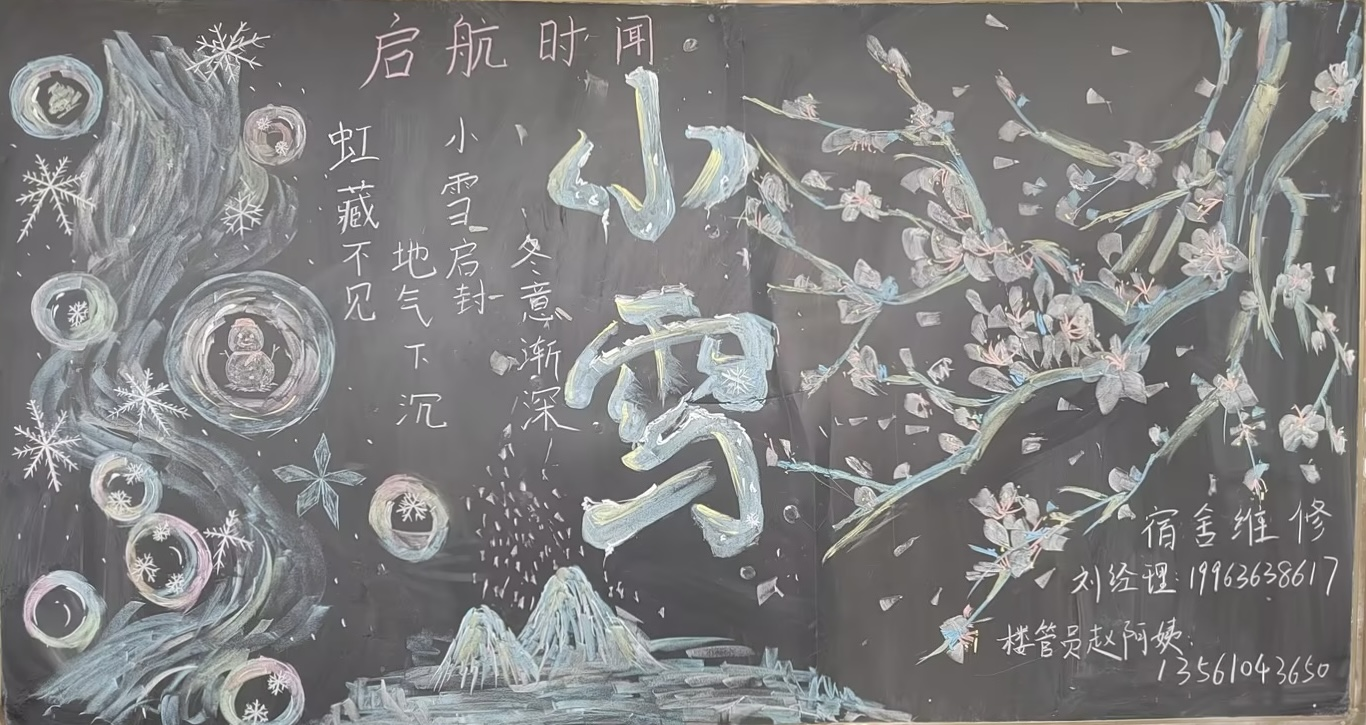 启航时闻
小雪
冬意渐深
小雪启封
地气下沉
虹藏不见
宿舍维修
刘经理:19963638617
楼管员赵阿姨:
13561043650